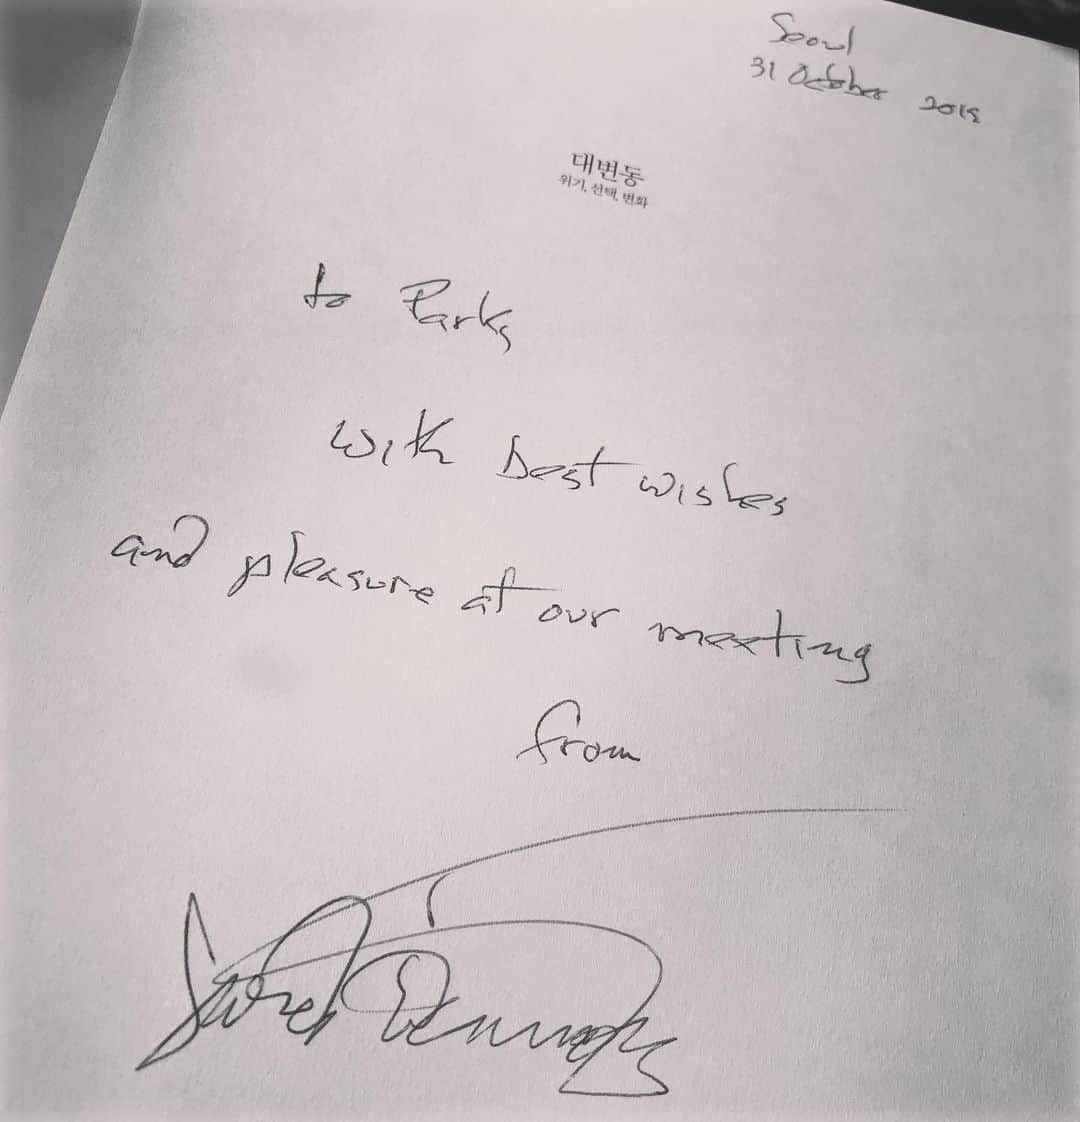 Seoul
31 October 2019
대변동
위기, 선택, 변화
to Parks
with best wishes
and pleasure at our meeting
from
Jared Diamond